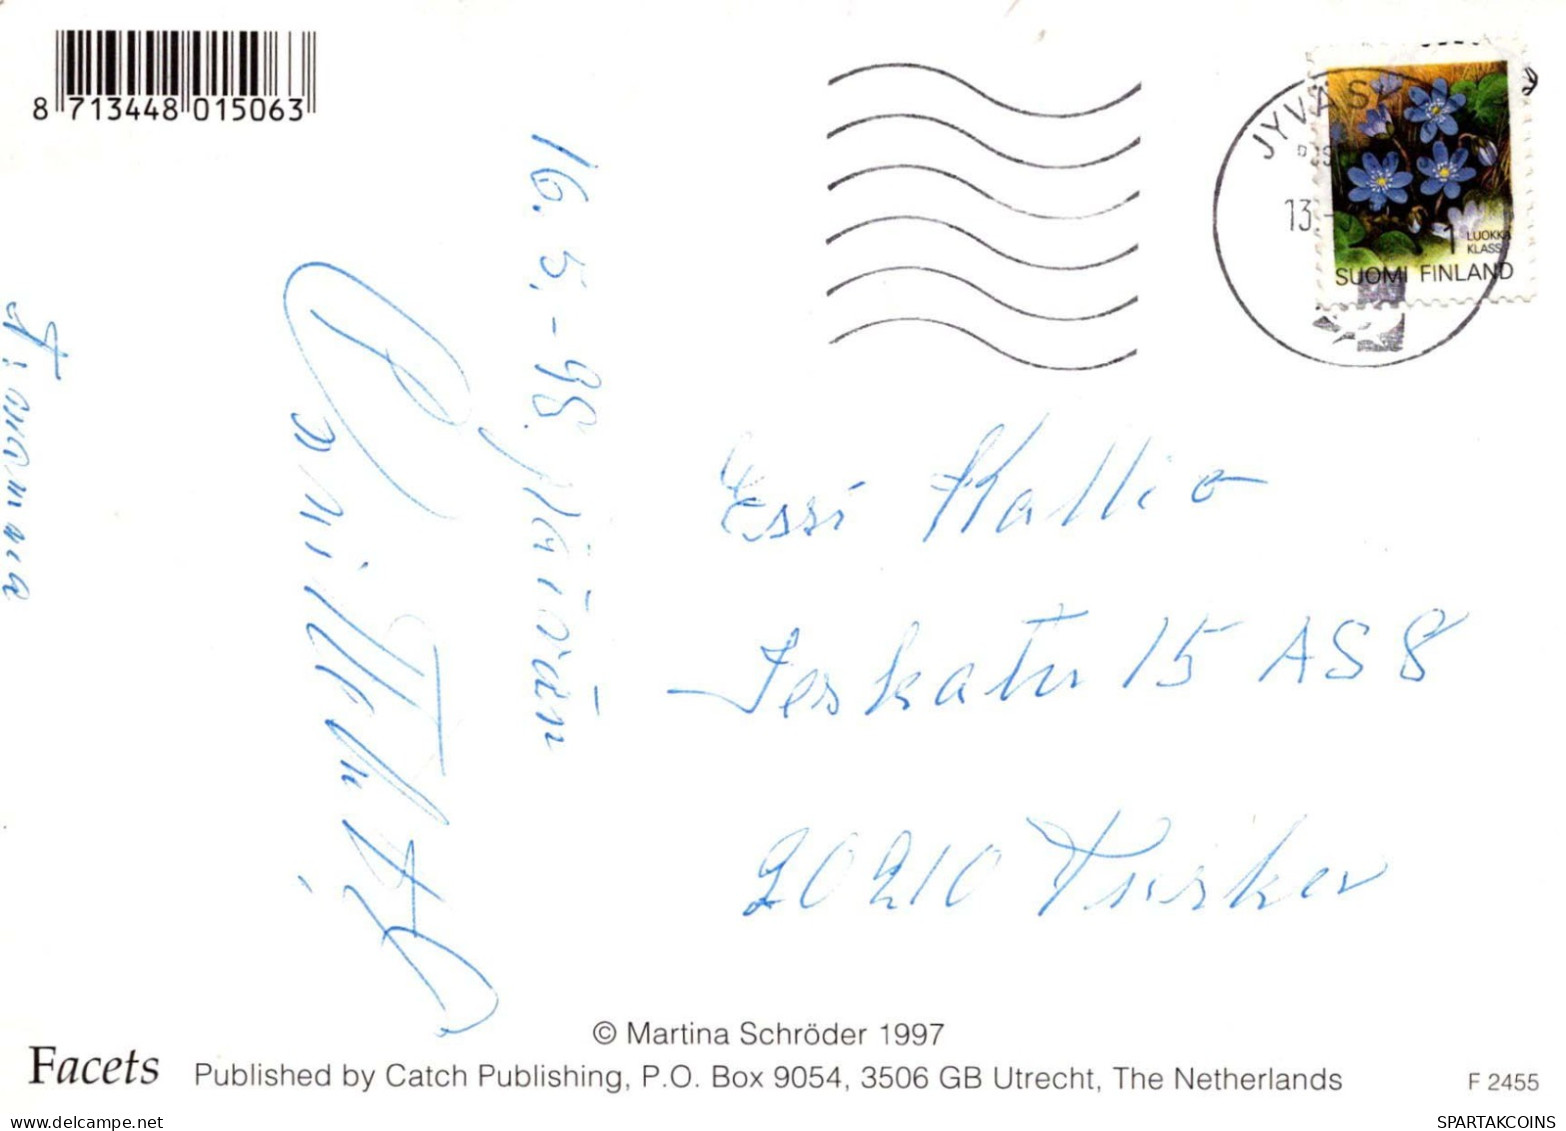 8 713448 015063
JYVÄS
13.
1 LUOKKA
KLASS
SUOMI FINLAND
16. 5. -98.
Onnittelut
Essi Kallio
Jeskatu 15 AS 8
20210 Turku
© Martina Schröder 1997
Facets Published by Catch Publishing, P.O. Box 9054, 3506 GB Utrecht, The Netherlands F 2455
SPARTAKCOINS